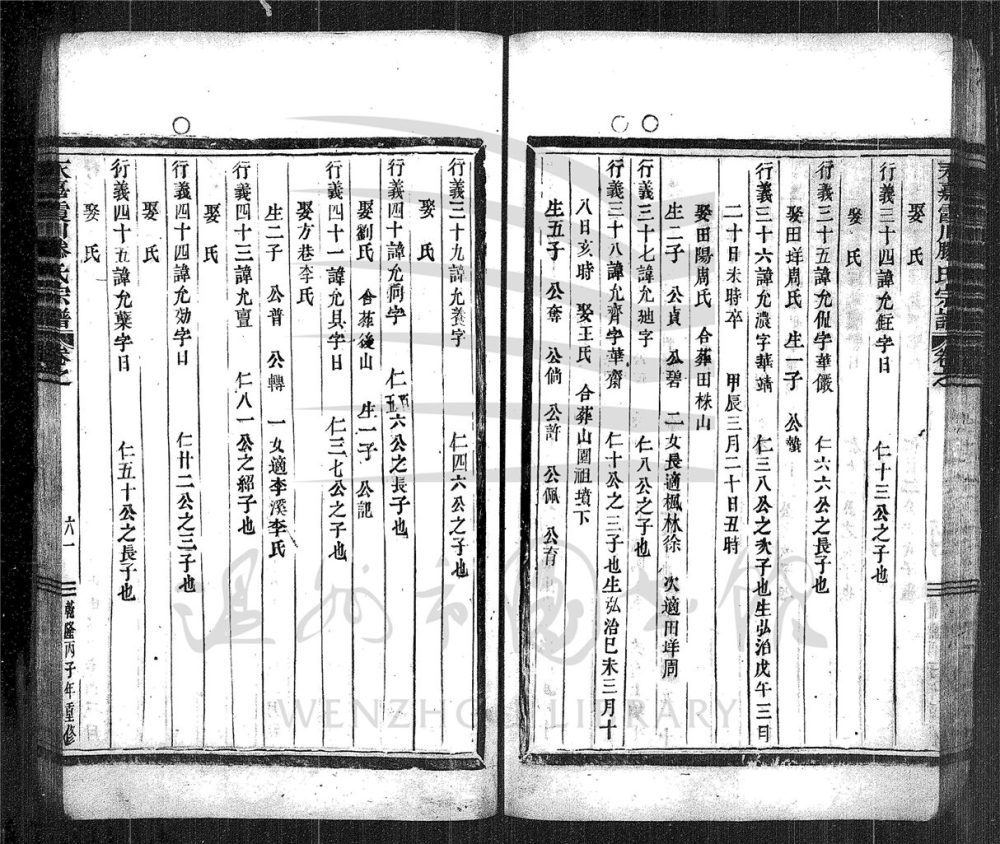 永嘉霞川滕氏宗譜 卷之
娶 氏
行義三十四諱允鉦字日 仁十三公之子也
娶 氏
行義三十五諱允侃字華儼 仁六六公之長子也
娶田垟周氏 生一子 公蟄
行義三十六諱允濃字華靖 仁三八公之次子也生弘治戊午三月
二十日未時卒 甲辰三月二十日丑時
娶田陽周氏 合葬田株山
生二子 公貞 公碧 二女長適楓林徐 次適田垟周
行義三十七諱允廸字 仁八公之子也
行義三十八諱允齊字華齋 仁十公之三子也生弘治巳未三月十
八日亥時 娶王氏 合葬山園祖墳下
生五子 公奪 公倘 公許 公佩 公育
行義三十九諱允養字 仁四六公之子也
娶 氏
行義四十諱允 字 仁 六公之長子也
娶劉氏 合葬後山 生一子 公記
行義四十一諱允具字日 仁三七公之子也
娶方巷李氏
生二子 公普 公轉 一女適李溪李氏
行義四十三諱允亶 仁八一公之紹子也
娶 氏
行義四十四諱允効字日 仁廿二公之三子也
娶 氏
行義四十五諱允葉字日 仁五十公之長子也
娶 氏
永嘉霞川滕氏宗譜 卷之 六一 乾隆丙子年重修
溫州市圖書館
WENZHOU LIBRARY